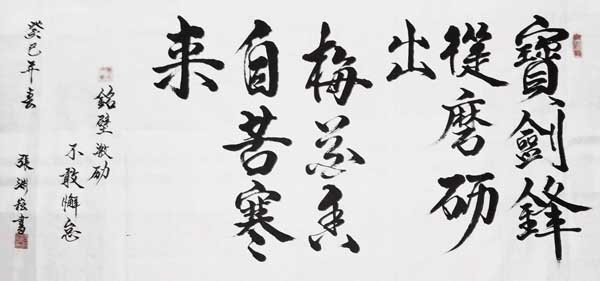 寶劍鋒
從磨砺
出
梅花香
自苦寒
来
銘壁激励
不敢懈怠
癸巳年春
張渊
書